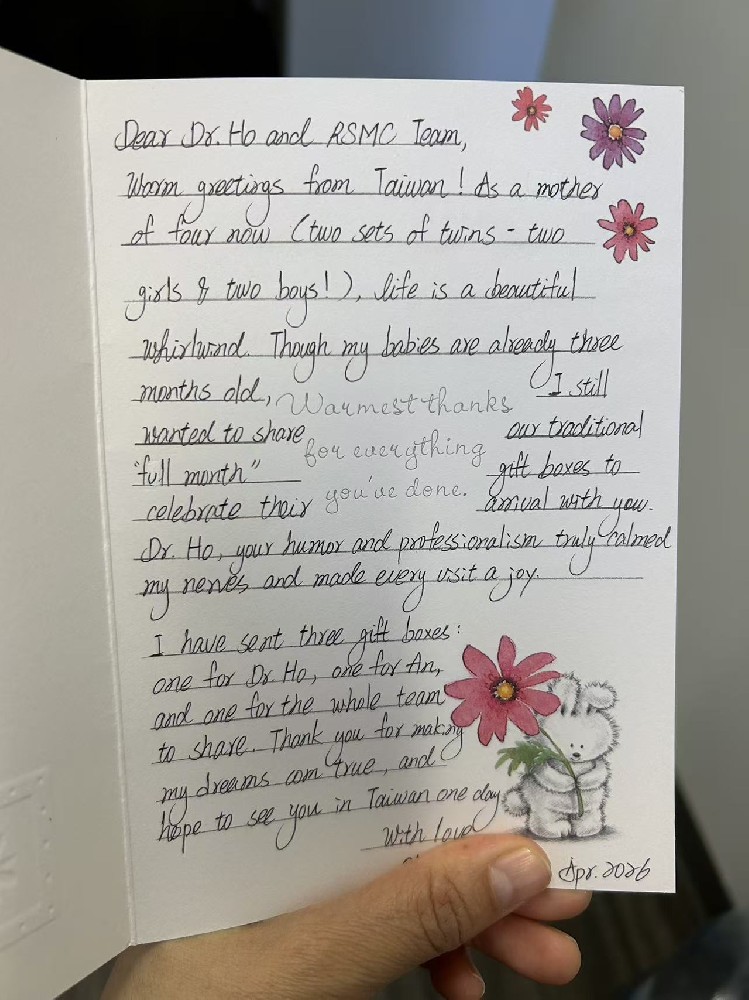 Dear Dr. Ho and RSMC Team,
Warm greetings from Taiwan! As a mother
of four now (two sets of twins - two
girls & two boys!), life is a beautiful
whirlwind. Though my babies are already three
months old, I still
wanted to share our traditional
"full month" gift boxes to
celebrate their arrival with you.
Warmest thanks
for everything
you've done.
Dr. Ho, your humor and professionalism truly calmed
my nerves and made every visit a joy.
I have sent three gift boxes:
one for Dr. Ho, one for An,
and one for the whole team
to share. Thank you for making
my dreams com true, and
hope to see you in Taiwan one day
With love
Apr. 2026